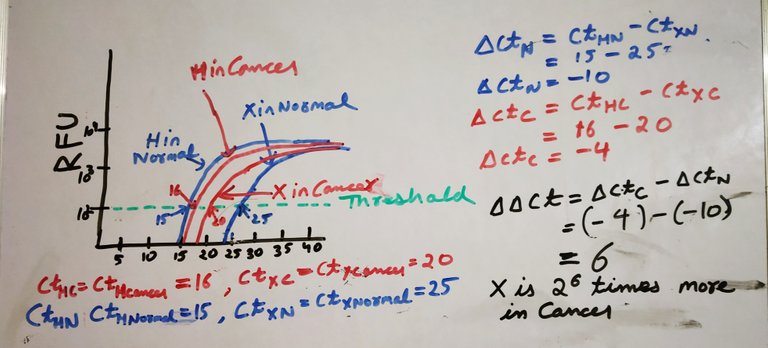 H in Cancer
X in Normal
H in
Normal
RFU
10⁴
10³
10²
16
15
20
25
X in Cancer
Threshold
5 10 15 20 25 30 35 40
CtHC = CtHCancer = 16 , CtXC = CtXCancer = 20
CtHN CtHNormal = 15, CtXN = CtXNormal = 25
ΔCtN = CtHN - CtXN
= 15 - 25
ΔCtN = -10
ΔCtC = CtHC - CtXC
= 16 - 20
ΔCtC = -4
ΔΔCt = ΔCtC - ΔCtN
= (-4) - (-10)
= 6
X is 2⁶ times more
in Cancer